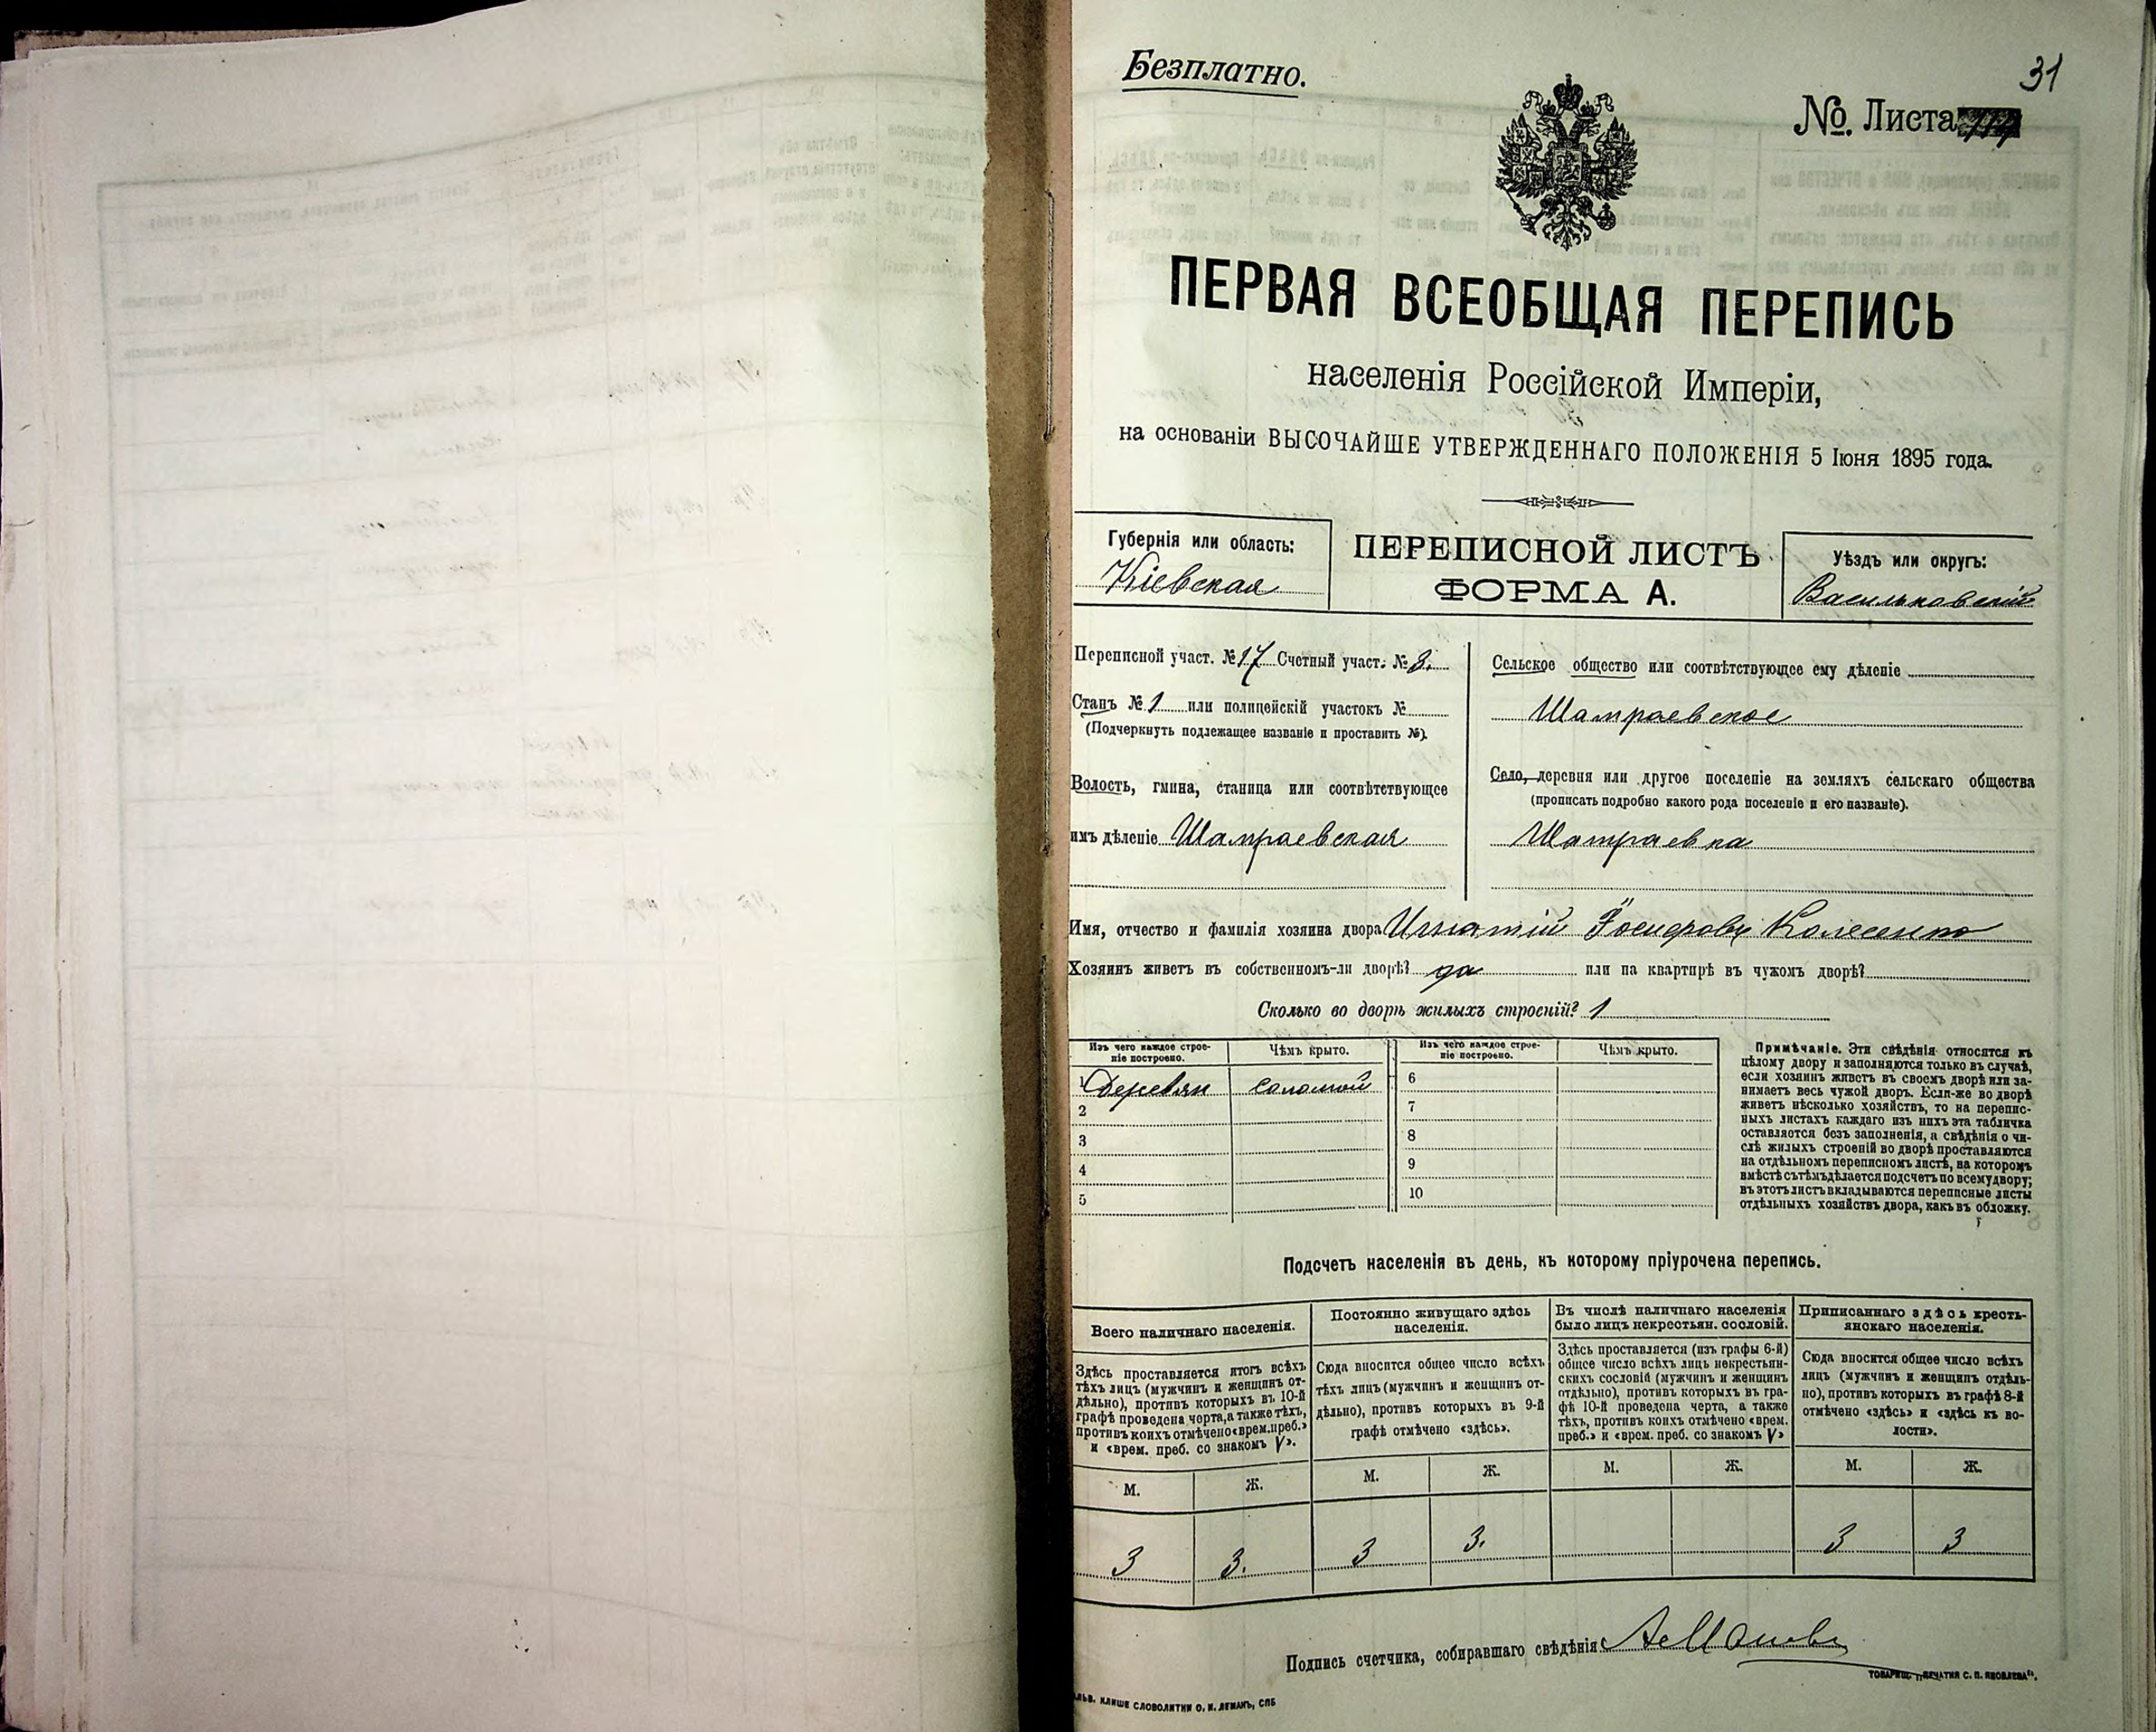 Безплатно.
31
№. Листа
ПЕРВАЯ ВСЕОБЩАЯ ПЕРЕПИСЬ
населенія Россійской Имперіи,
на основаніи ВЫСОЧАЙШЕ УТВЕРЖДЕННАГО ПОЛОЖЕНІЯ 5 Іюня 1895 года.
Губернія или область:
Кіевская
ПЕРЕПИСНОЙ ЛИСТЪ
ФОРМА А.
Уѣздъ или округъ:
Васильковскій
Переписной участ. № 17 Счетный участ. № 3.
Станъ № 1 или полицейскій участокъ №
(Подчеркнуть подлежащее названіе и проставить №).
Волость, гмина, станица или соотвѣтствующее
имъ дѣленіе Шамраевская
Сельское общество или соотвѣтствующее ему дѣленіе
Шамраевское
Село, деревня или другое поселеніе на земляхъ сельскаго общества
(прописать подробно какого рода поселеніе и его названіе).
Шамраевка
Имя, отчество и фамилія хозяина двора Игнатій Колесенко
Хозяинъ живетъ въ собственномъ-ли дворѣ? да или на квартирѣ въ чужомъ дворѣ?
Сколько во дворѣ жилыхъ строеній? 1
Изъ чего каждое строе-
ніе построено.
Чѣмъ крыто.
Изъ чего каждое строе-
ніе построено.
Чѣмъ крыто.
1 Деревян соломой
2
3
4
5
6
7
8
9
10
Примѣчаніе. Эти свѣдѣнія относятся къ
цѣлому двору и заполняются только въ случаѣ,
если хозяинъ живетъ въ своемъ дворѣ или за-
нимаетъ весь чужой дворъ. Если-же во дворѣ
живетъ нѣсколько хозяйствъ, то на перепис-
ныхъ листахъ каждаго изъ нихъ эта табличка
оставляется безъ заполненія, а свѣдѣнія о чи-
слѣ жилыхъ строеній во дворѣ проставляются
на отдѣльномъ переписномъ листѣ, на которомъ
вмѣстѣ съ тѣмъ дѣлается подсчетъ по всему двору;
въ этотъ листъ вкладываются переписные листы
отдѣльныхъ хозяйствъ двора, какъ въ обложку.
Подсчетъ населенія въ день, къ которому пріурочена перепись.
Всего наличнаго населенія.
Здѣсь проставляется итогъ всѣхъ
тѣхъ лицъ (мужчинъ и женщинъ от-
дѣльно), противъ которыхъ въ 10-й
графѣ проведена черта, а также тѣхъ,
противъ коихъ отмѣчено «врем. преб.»
и «врем. преб. со знакомъ V».
М. Ж.
3 3.
Постоянно живущаго здѣсь
населенія.
Сюда вносится общее число всѣхъ
тѣхъ лицъ (мужчинъ и женщинъ от-
дѣльно), противъ которыхъ въ 9-й
графѣ отмѣчено «здѣсь».
М. Ж.
3 3.
Въ числѣ наличнаго населенія
было лицъ некрестьян. сословій.
Здѣсь проставляется (изъ графы 6-й)
общее число всѣхъ лицъ некрестьян-
скихъ сословій (мужчинъ и женщинъ
отдѣльно), противъ которыхъ въ гра-
фѣ 10-й проведена черта, а также
тѣхъ, противъ коихъ отмѣчено «врем.
преб.» и «врем. преб. со знакомъ V»
М. Ж.
Приписаннаго здѣсь кресть-
янскаго населенія.
Сюда вносится общее число всѣхъ
лицъ (мужчинъ и женщинъ отдѣль-
но), противъ которыхъ въ графѣ 8-й
отмѣчено «здѣсь» и «здѣсь къ во-
лости».
М. Ж.
3 3
Подпись счетчика, собиравшаго свѣдѣнія
ТОВАРИЩ. „ПЕЧАТНЯ С. П. ЯКОВЛЕВА“.
КЛИШЕ СЛОВОЛИТНИ О. И. ЛЕМАНЪ, СПБ